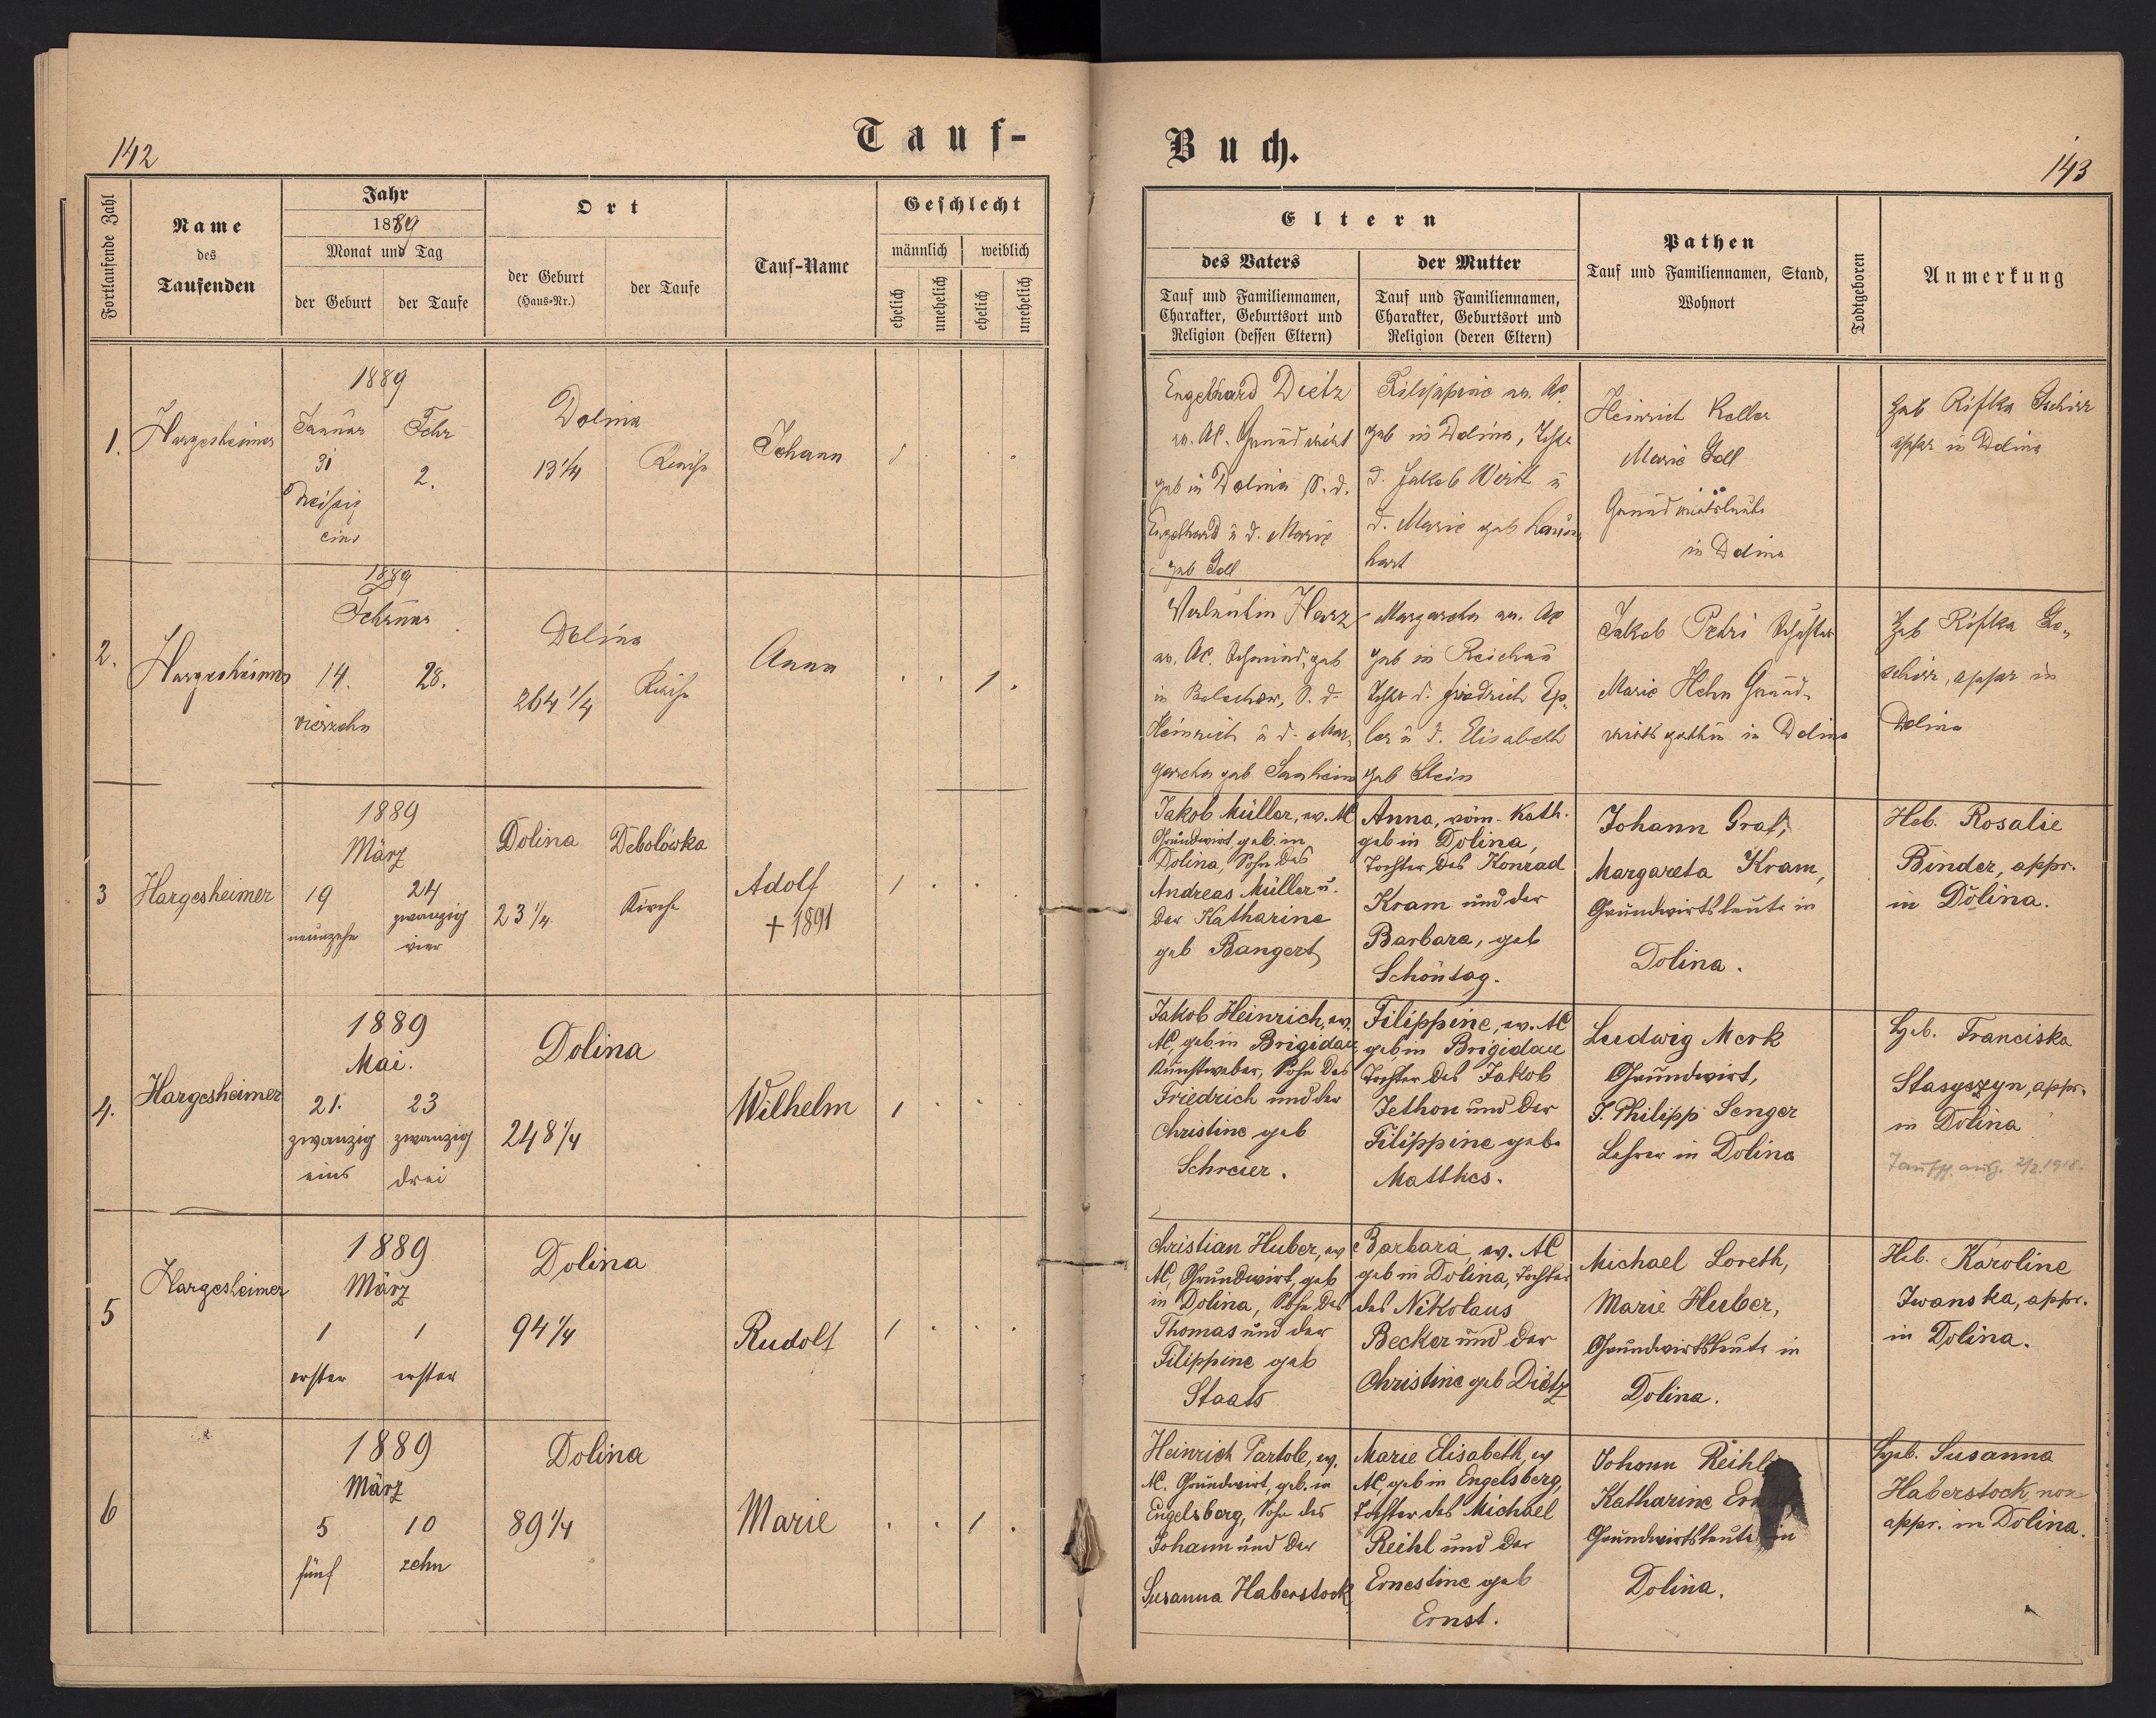 142
Tauf-
Fortlaufende Zahl
Name
des
Taufenden
Jahr
1889
Monat und Tag
der Geburt
der Taufe
Ort
der Geburt
(Haus-Nr.)
der Taufe
Tauf-Name
Geschlecht
männlich
weiblich
ehelich
unehelich
ehelich
unehelich
1.
Hargesheimer
1889
Januar
31
dreißig
eins
Febr
2.
Dolina
13 1/4
Kirche
Johann
2.
Hargesheimer
1889
Februar
14.
vierzehn
28.
Dolina
264 1/4
Kirche
Anna
1
3
Hargesheimer
1889
März
19
neunzehn
24
zwanzig
vier
Dolina
23 1/4
Debolówka
Kirche
Adolf
+ 1891
1
4.
Hargesheimer
1889
Mai.
21.
zwanzig
eins
23
zwanzig
drei
Dolina
248 1/4
Wilhelm
1
5
Hargesheimer
1889
März
1
erster
1
erster
Dolina
94 1/4
Rudolf
1
6
1889
März
5
fünf
10
zehn
Dolina
89 1/4
Marie
1
Buch.
143
Eltern
des Vaters
Tauf und Familiennamen,
Charakter, Geburtsort und
Religion (dessen Eltern)
der Mutter
Tauf und Familiennamen,
Charakter, Geburtsort und
Religion (deren Eltern)
Pathen
Tauf und Familiennamen, Stand,
Wohnort
Todtgeboren
Anmerkung
Engelhard Dietz
ev. AC. Grundwirt
geb in Dolina S. d.
Engelhard u d. Marie
geb Goll
Filippine ev. AC.
geb in Dolina, Tochter
d. Jakob Wirth u
d. Marie geb
hart
Heinrich Keller
Marie Goll
Grundwirtsleute
in Dolina
Heb Rifka
appr in Dolina
Valentin Harz
ev. AC. Schmied, geb
in Bolechow, S. d.
Heinrich u d. Mar-
garetha geb
Margaretha ev. AC
geb in Reichau
Tocht d. Friedrich Ep-
ler u d. Elisabeth
geb Stein
Jakob Petri Schuster
Marie Hehn Grund-
wirtsgattin in Dolina
Heb Rifka Ge-
schirr, appr in
Dolina
Jakob Müller, ev. AC
Grundwirt, geb. in
Dolina, Sohn des
Andreas Müller u.
der Katharine
geb Bangert
Anna, röm-Kath.
geb in Dolina,
Tochter des Konrad
Kram und der
Barbara, geb
Schöntag.
Johann Graf,
Margareta Kram,
Grundwirtsleute in
Dolina.
Heb. Rosalie
Binder, appr.
in Dolina.
Jakob Heinrich, ev.
AC, geb. in Brigidau
Kunstweber, Sohn des
Friedrich und der
Christine geb
Schreier.
Filippine, ev. AC
geb in Brigidau
Tochter des Jakob
Jethon und der
Filippine geb.
Matthes.
Ludwig Merk
Grundwirt,
J. Philipp Senger
Lehrer in Dolina
Heb. Franciska
Stasyszyn, appr.
in Dolina
Taufsch. ausg. 2/2. 1918.
Christian Huber, ev
AC, Grundwirt, geb
in Dolina, Sohn des
Thomas und der
Filippine geb
Staats
Barbara, ev. AC
geb in Dolina, Tochter
des Nikolaus
Becker und der
Christine geb Dietz
Michael Loreth,
Marie Huber,
Grundwirtsleute in
Dolina.
Heb. Karoline
Iwanska, appr.
in Dolina.
Heinrich Partole, ev.
AC. Grundwirt, geb. in
Engelsberg, Sohn des
Johann und der
Susanna Haberstock
Marie Elisabeth, ev
AC, geb in Engelsberg,
Tochter des Michael
Reihl und der
Ernestine geb
Ernst.
Johann Reihl
Katharine
Grundwirtsleute in
Dolina.
Heb. Susanna
Haberstock, non
appr. in Dolina.